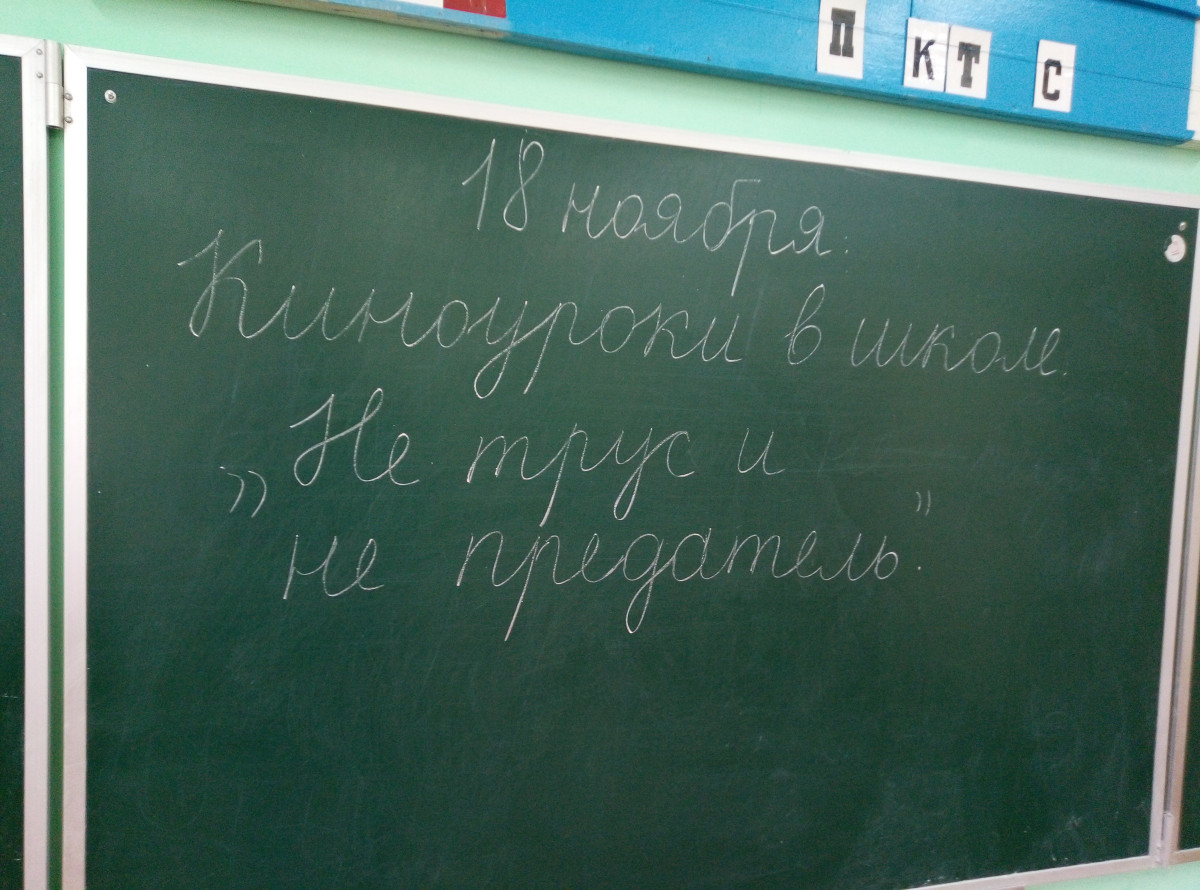 П К Т С
18 ноября.
Киноуроки в школе.
„Не трус и
не предатель".